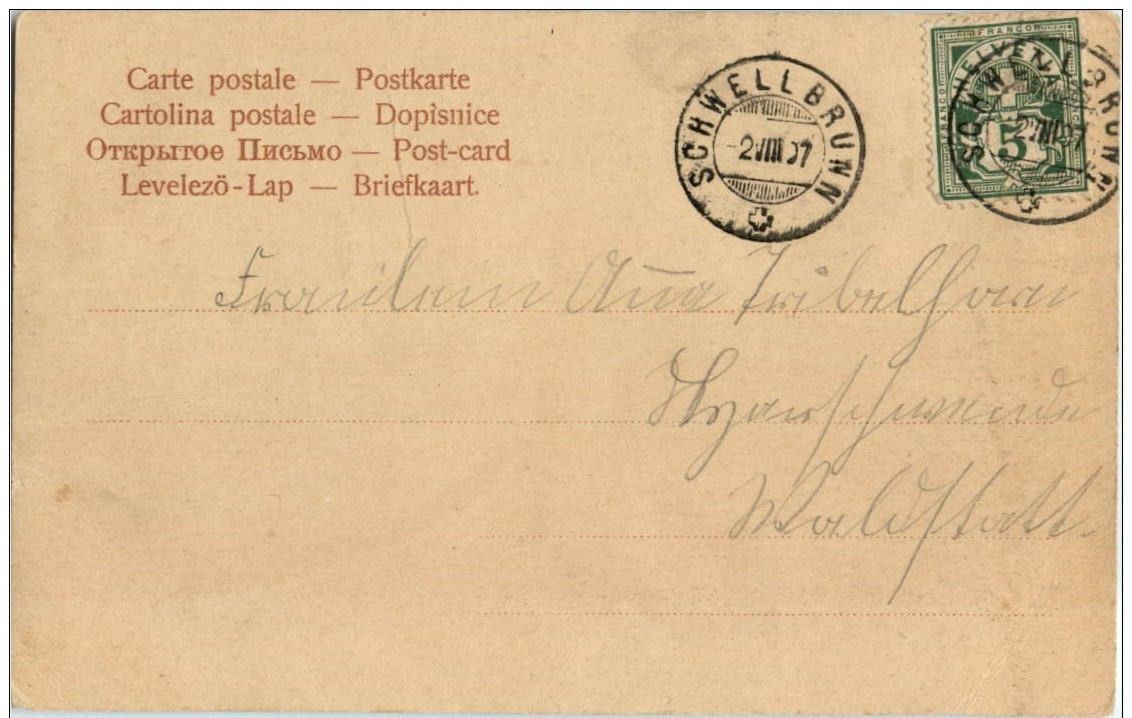 Carte postale — Postkarte
Cartolina postale — Dopisnice
Открытое Письмо — Post-card
Levelező-Lap — Briefkaart.
SCHWELLBRUNN
2 VIII 07
FRANCO
HELVE
FRANCO
5
SCHWELLBRUNN
2 VIII 07
Fräulein Anna Tribelhorn
Waldstatt.